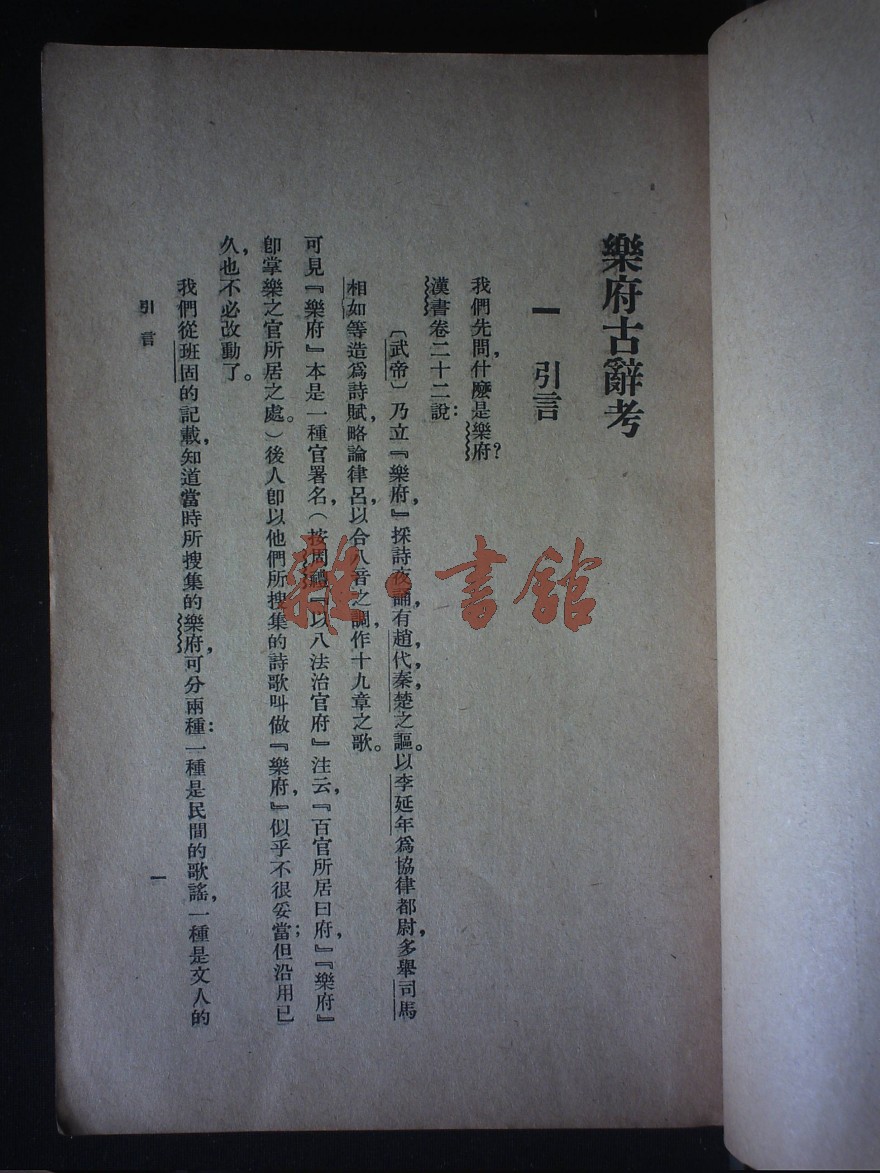 樂府古辭考
一　引言
我們先問，什麼是樂府？
漢書卷二十二說：
〔武帝〕乃立『樂府，』採詩夜誦，有趙，代，秦，楚之謳。以李延年爲協律都尉，多舉司馬
相如等造爲詩賦，略論律呂，以合八音之調，作十九章之歌。
可見『樂府』本是一種官署名，（按周禮『以八法治官府』注云，『百官所居曰府，』『樂府』
卽掌樂之官所居之處。）後人卽以他們所搜集的詩歌叫做『樂府，』似乎不很妥當；但沿用已
久，也不必改動了。
我們從班固的記載，知道當時所搜集的樂府，可分兩種：一種是民間的歌謠，一種是文人的
引言
一
雜·書館